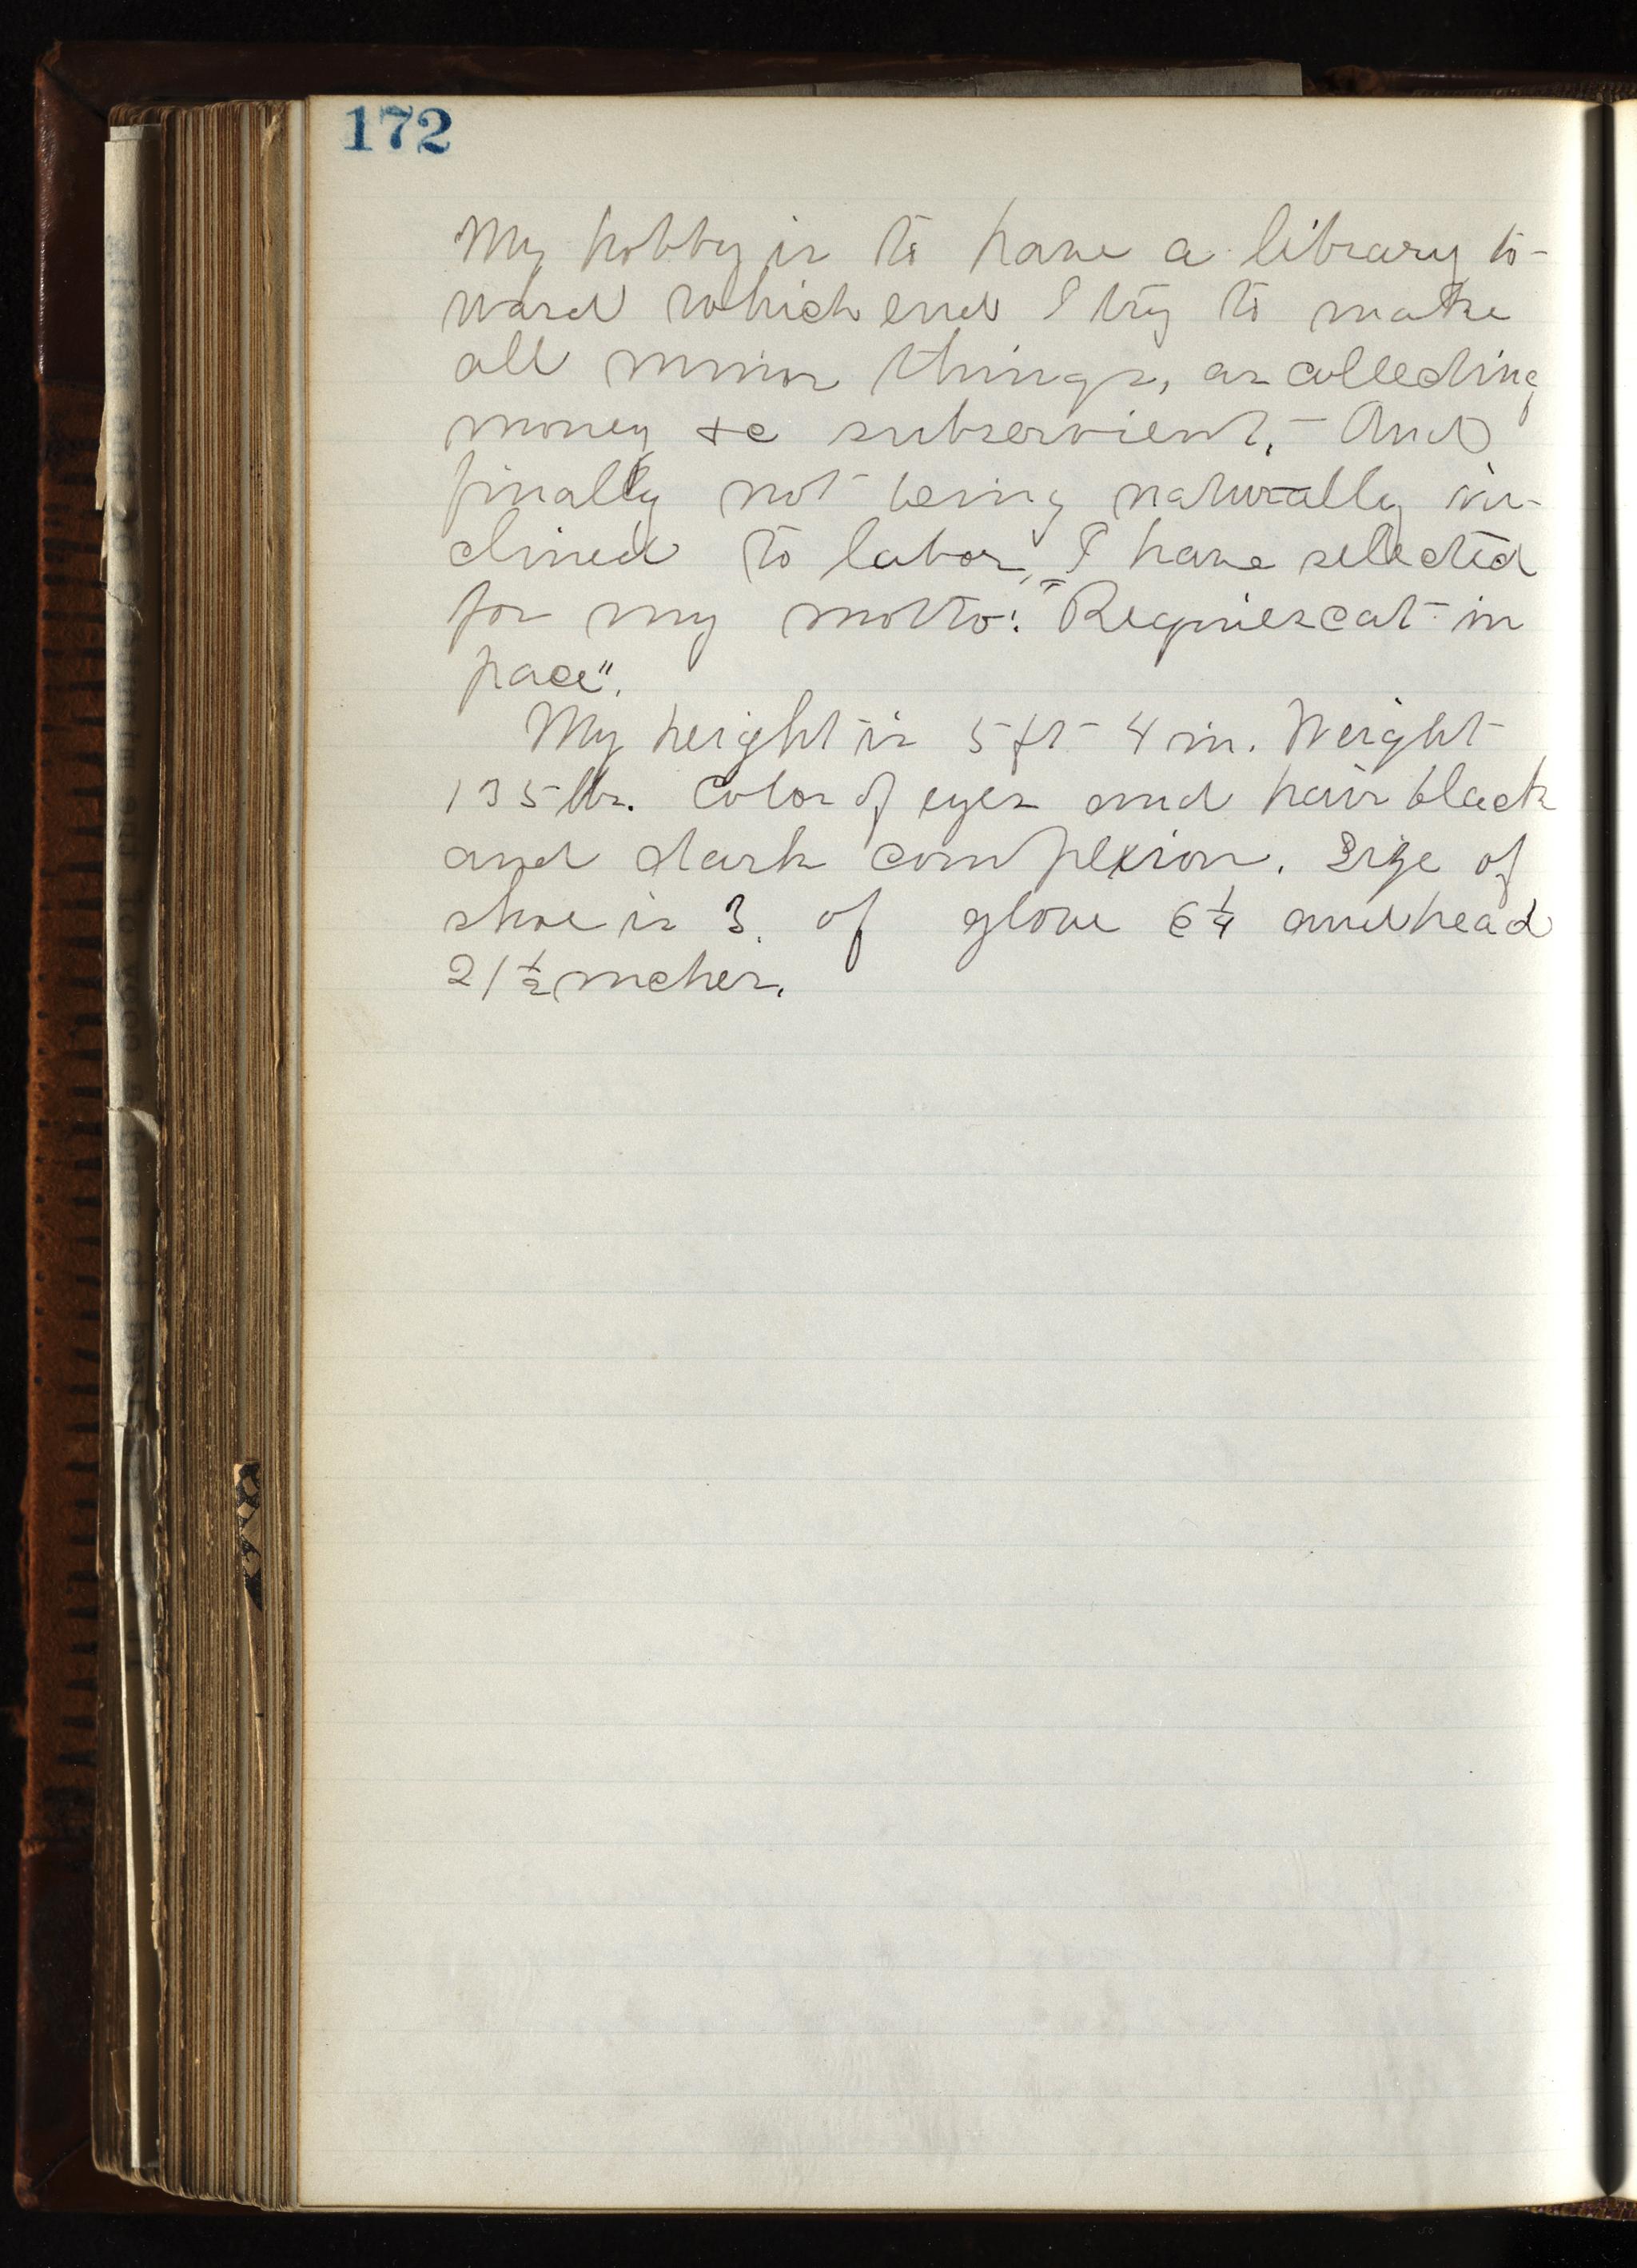 172
My hobby is to have a library to-
ward which end I try to make
all minor things, as collecting
money &c subservient. - And
finally not being naturally in-
clined to labor, I have selected
for my motto: "Requiescat in
pace".
My height is 5 ft 4 in. Weight
135 lbs. Color of eyes and hair black
and dark complexion. Size of
shoe is 3, of glove 6 1/4 and head
21 1/2 inches.